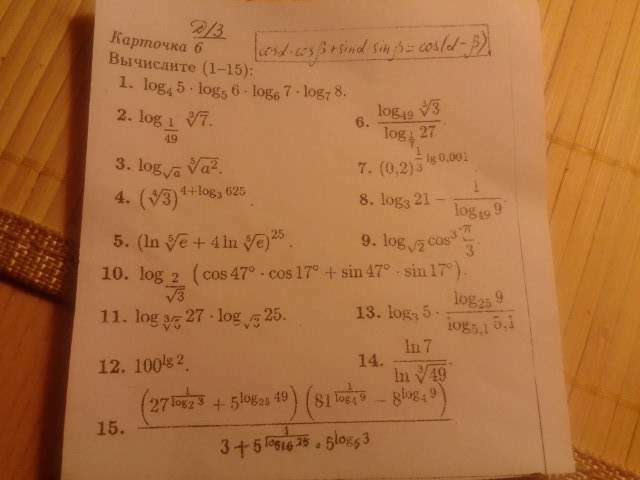 Д/З
Карточка 6
cosα·cosβ+sinα·sinβ=cos(α-β)
Вычислите (1–15):
1. log₄ 5 · log₅ 6 · log₆ 7 · log₇ 8.
2. log_{1/49} ∛7.
6. log₄₉ ∛3 / log_{1/7} 27.
3. log_{√a} ⁵√a².
7. (0,2)^{1/3 lg 0,001}
4. (∜3)^{4+log₃ 625}.
8. log₃ 21 − 1/log₄₉ 9.
5. (ln ⁵√e + 4 ln ⁵√e)^{25}.
9. log_{√2} cos³ π/3.
10. log_{2/√3} (cos 47° · cos 17° + sin 47° · sin 17°).
11. log 27 · log 25.
13. log₃ 5 · log₂₅ 9 / log_{5,1} 5,1
12. 100^{lg 2}.
14. ln 7 / ln ∛49.
15. (27^{1/log₂ 3} + 5^{log₂₅ 49}) (81^{1/log₄ 9} − 8^{log₄ 9}) / 3 + 5^{1/log₁₆ 25} · 5^{log₅ 3}